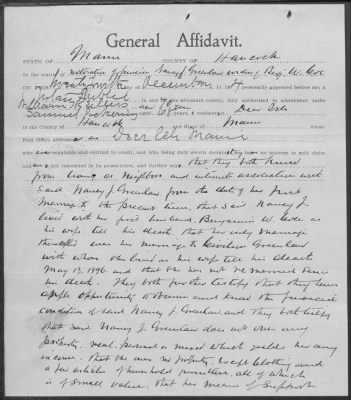 General Affidavit.
STATE OF Maine COUNTY OF Hancock
In the matter of restoration of pension Nancy J. Greenlaw widow of Benj. W. Cole
ON THIS DAY OF December A. D. personally appeared before me, a
in and for the aforesaid county, duly authorized to administer oaths
aged 67 years, a resident of Deer Isle
aged years, a resident of
in the County of Hancock and State of Maine
whose Post Office address is Deer Isle Maine
well known to be reputable and entitled to credit, and who being duly sworn, declared that they have no interest in said claim
and not concerned in its prosecution, and further say that they both know
from living as Neighbors and intimate association with
said Nancy J. Greenlaw from the date of her first
Marriage to the present time, that said Nancy J.
lived with her first husband, Benjamin W. Cole as
his wife till his death, that her only marriage
thereafter was her marriage to Greenlaw
with whom she lived as his wife till his death
May 13, 1896. and that she has not re-married since
his death. They both further testify that they have
ample opportunity to observe and know the financial
condition of said Nancy J. Greenlaw and they both testify
that said Nancy J. Greenlaw does not own any
property, real, personal or mixed which yields her any
income. That she owns no property, except clothing and
a few articles of household furniture, all of which
is of small value, that her means of support